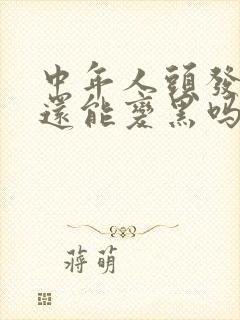 中年人頭發
還能變黑嗎
蔣萌